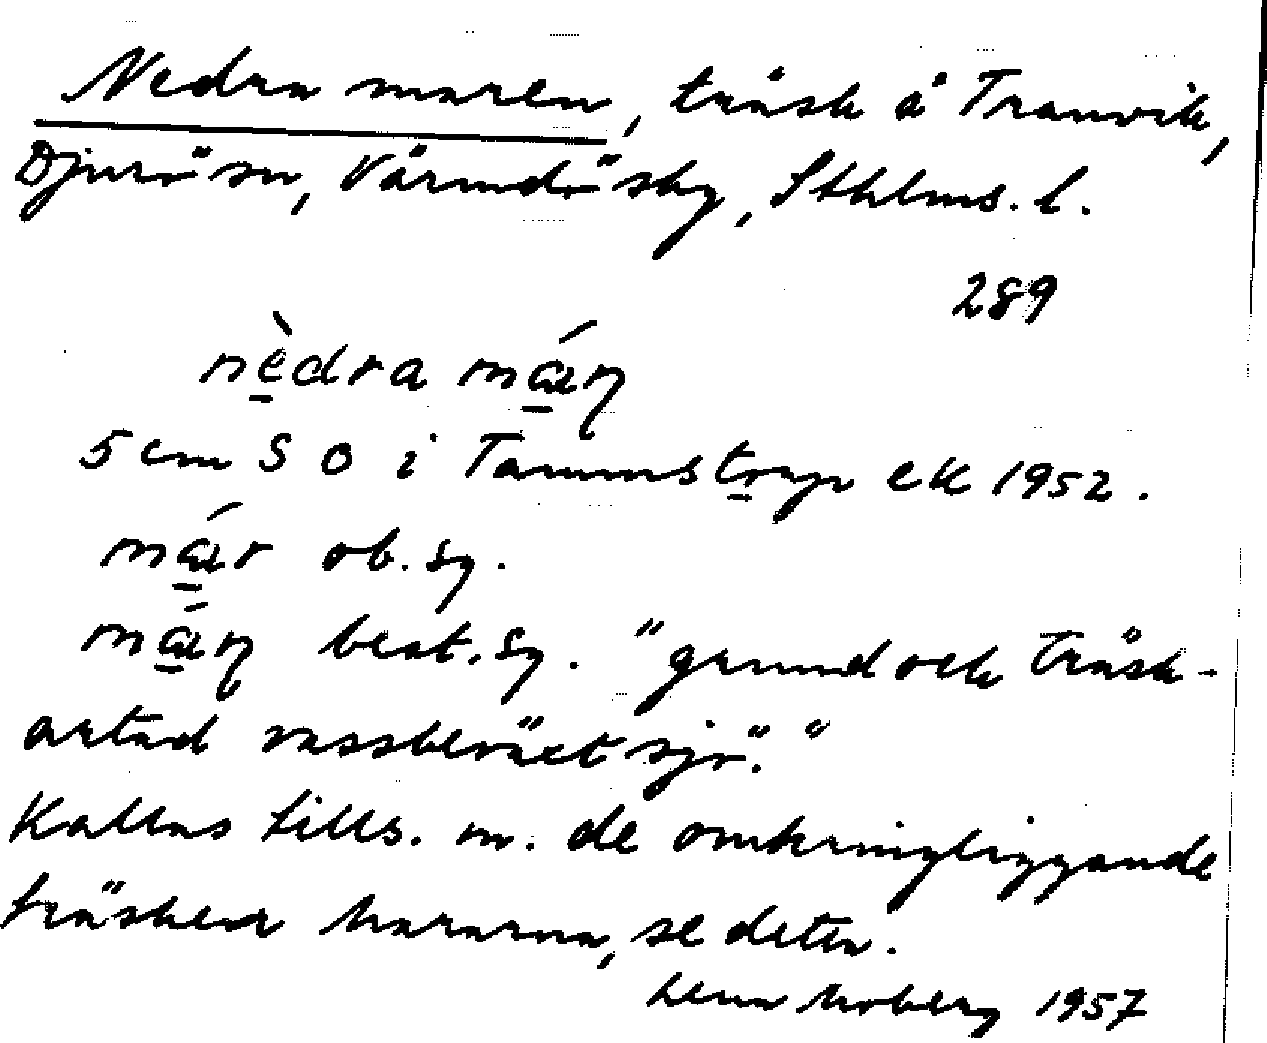 Nedra maren, träsk å Tranvik,
Djurö sn, Värmdö sky, Sthlms. l.
289
nèdra mán
5 cm S O i Tammstryp ek 1952.
már ob. sg.
mán best. sg. "grund och träsk-
artad vassbeväxt sjö."
Kallas tills. m. de omkringliggande
träsken Mararna, se detta.
Lena Moberg 1957